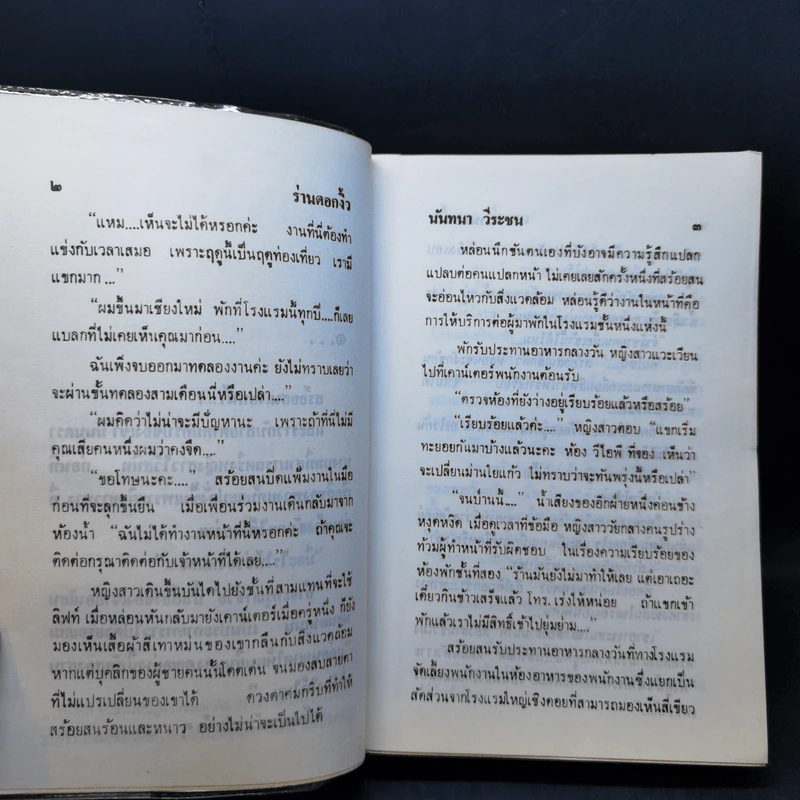 ๒
ร่านดอกงิ้ว
“แหม....เห็นจะไม่ได้หรอกค่ะ งานที่นี่ต้องทำ
แข่งกับเวลาเสมอ เพราะฤดูนี้เป็นฤดูท่องเที่ยว เรามี
แขกมาก ...”
“ผมขึ้นมาเชียงใหม่ พักที่โรงแรมนี้ทุกปี....ก็เลย
แปลกที่ไม่เคยเห็นคุณมาก่อน....”
ฉันเพิ่งจบออกมาทดลองงานค่ะ ยังไม่ทราบเลยว่า
จะผ่านขั้นทดลองสามเดือนนี่หรือเปล่า....”
“ผมคิดว่าไม่น่าจะมีปัญหานะ เพราะถ้าที่นี่ไม่มี
คุณเสียคนหนึ่งผมว่าคงจืด....”
“ขอโทษนะคะ....” สร้อยสนปิดแฟ้มงานในมือ
ก่อนที่จะลุกขึ้นยืน เมื่อเพื่อนร่วมงานเดินกลับมาจาก
ห้องน้ำ “ฉันไม่ได้ทำงานหน้าที่นี้หรอกค่ะ ถ้าคุณจะ
ติดต่อกรุณาติดต่อกับเจ้าหน้าที่ได้เลย....”
หญิงสาวเดินขึ้นบันไดไปยังชั้นที่สามแทนที่จะใช้
ลิฟท์ เมื่อหล่อนหันกลับมายังเคาน์เตอร์เมื่อครู่หนึ่ง ก็ยัง
มองเห็นเสื้อผ้าสีเทาหม่นของเขากลืนกับสิ่งแวดล้อม
หากแต่บุคลิกของผู้ชายคนนั้นโดดเด่น จนมองสบสายตา
ที่ไม่แปรเปลี่ยนของเขาได้ ดวงตาคมกริบที่ทำให้
สร้อยสนร้อนและหนาว อย่างไม่น่าจะเป็นไปได้
นันทนา วีระชน
๓
หล่อนนึกชันตนเองที่บังอาจมีความรู้สึกแปลก
แปลบต่อคนแปลกหน้า ไม่เคยเลยสักครั้งหนึ่งที่สร้อยสน
จะอ่อนไหวกับสิ่งแวดล้อม หล่อนรู้ดีว่างานในหน้าที่คือ
การให้บริการต่อผู้มาพักในโรงแรมชั้นหนึ่งแห่งนี้
พักรับประทานอาหารกลางวัน หญิงสาวแวะเวียน
ไปที่เคาน์เตอร์พนักงานต้อนรับ
“ตรวจห้องที่ยังว่างอยู่เรียบร้อยแล้วหรือสร้อย”
“เรียบร้อยแล้วค่ะ....” หญิงสาวตอบ “แขกเริ่ม
ทะยอยกันมาบ้างแล้วนะคะ ห้อง วีไอพี ที่จอง เห็นว่า
จะเปลี่ยนม่านใยแก้ว ไม่ทราบว่าจะทันพรุ่งนี้หรือเปล่า”
“จนป่านนี้....” น้ำเสียงของอีกฝ่ายหนึ่งค่อนข้าง
หงุดหงิด เมื่อดูเวลาที่ข้อมือ หญิงสาววัยกลางคนรูปร่าง
ท้วมผู้ทำหน้าที่รับผิดชอบ ในเรื่องความเรียบร้อยของ
ห้องพักชั้นที่สอง “ร้านมันยังไม่มาทำให้เลย แต่เอาเถอะ
เดี๋ยวกินข้าวเสร็จแล้ว โทร. เร่งให้หน่อย ถ้าแขกเข้า
พักแล้วเราไม่มีสิทธิ์เข้าไปยุ่มย่าม....”
สร้อยสนรับประทานอาหารกลางวันที่ทางโรงแรม
จัดเลี้ยงพนักงานในห้องอาหารของพนักงานซึ่งแยกเป็น
สัดส่วนจากโรงแรมใหญ่เชิงดอยที่สามารถมองเห็นสีเขียว